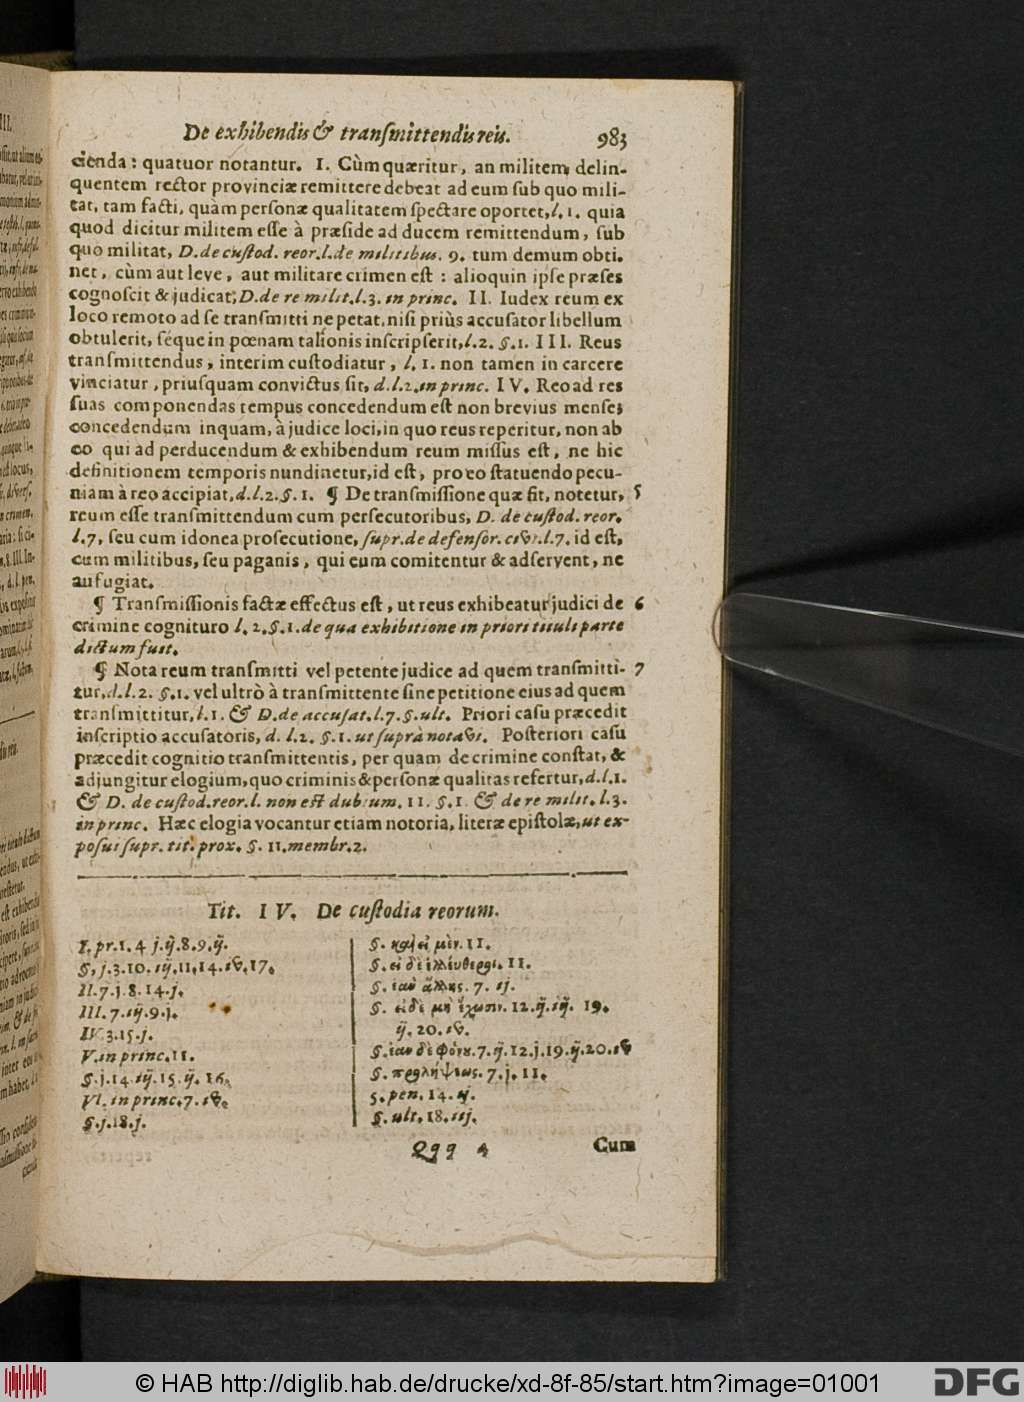 De exhibendis & transmittendis reis. 983
cienda: quatuor notantur. I. Cùm quæritur, an militem delin-
quentem rector provinciæ remittere debeat ad eum sub quo mili-
tat, tam facti, quàm personæ qualitatem spectare oportet, l. 1. quia
quod dicitur militem esse à præside ad ducem remittendum, sub
quo militat, D. de custod. reor. l. de militibus. 9. tum demum obti-
net, cùm aut leve, aut militare crimen est: alioquin ipse præses
cognoscit & judicat, D. de re milit. l. 3. in princ. II. Iudex reum ex
loco remoto ad se transmitti ne petat, nisi priùs accusator libellum
obtulerit, séque in pœnam talionis inscripserit, l. 2. §. 1. III. Reus
transmittendus, interim custodiatur, l. 1. non tamen in carcere
vinciatur, priusquam convictus sit, d. l. 2. in princ. IV. Reo ad res
suas componendas tempus concedendum est non brevius mense;
concedendum inquam, à judice loci, in quo reus reperitur, non ab
eo qui ad perducendum & exhibendum reum missus est, ne hic
definitionem temporis nundinetur, id est, pro eo statuendo pecu-
niam à reo accipiat, d. l. 2. §. 1. ¶ De transmissione quæ fit, notetur, 5
reum esse transmittendum cum persecutoribus, D. de custod. reor.
l. 7, seu cum idonea prosecutione, supr. de defensor. civi. l. 7. id est,
cum militibus, seu paganis, qui eum comitentur & adservent, ne
aufugiat.
¶ Transmissionis factæ effectus est, ut reus exhibeatur judici de 6
crimine cognituro l. 2. §. 1. de qua exhibitione in priori tituli parte
dictum fuit.
¶ Nota reum transmitti vel petente judice ad quem transmitti- 7
tur, d. l. 2. §. 1. vel ultrò à transmittente sine petitione eius ad quem
transmittitur, l. 1. & D. de accusat. l. 7. §. ult. Priori casu præcedit
inscriptio accusatoris, d. l. 2. §. 1. ut suprà notavi. Posteriori casu
præcedit cognitio transmittentis, per quam de crimine constat, &
adjungitur elogium, quo criminis & personæ qualitas refertur, d. l. 1.
& D. de custod. reor. l. non est dubium. 11. §. 1. & de re milit. l. 3.
in princ. Hæc elogia vocantur etiam notoria, literæ epistolæ, ut ex-
posui supr. tit. prox. §. 11. membr. 2.
Tit. IV. De custodia reorum.
I. pr. 1. 4 j. ij. 8. 9. ij.
§. j. 3. 10. iij. 11. 14. iv. 17.
II. 7. j. 8. 14. j.
III. 7. iij. 9. j.
IV. 3. 15. j.
V. in princ. 11.
§. j. 14. iij. 15. ij. 16.
VI. in princ. 7. iv.
§. j. 18. j.
§. καὶ εἰ μὲν. 11.
§. εἰ δὲ ἐλεύθεροι. 11.
§. ἐὰν ἄλλης. 7. ij.
§. εἰ δὲ μὴ ἔχωσιν. 12. ij. iij. 19.
ij. 20. iv.
§. ἐὰν δὲ φόνου. 7. ij. 12. j. 19. ij. 20. iv
§. προλήψεως. 7. j. 11.
§. pen. 14. ij.
§. ult. 18. iij.
Qqq 4 Cum
© HAB http://diglib.hab.de/drucke/xd-8f-85/start.htm?image=01001
DFG